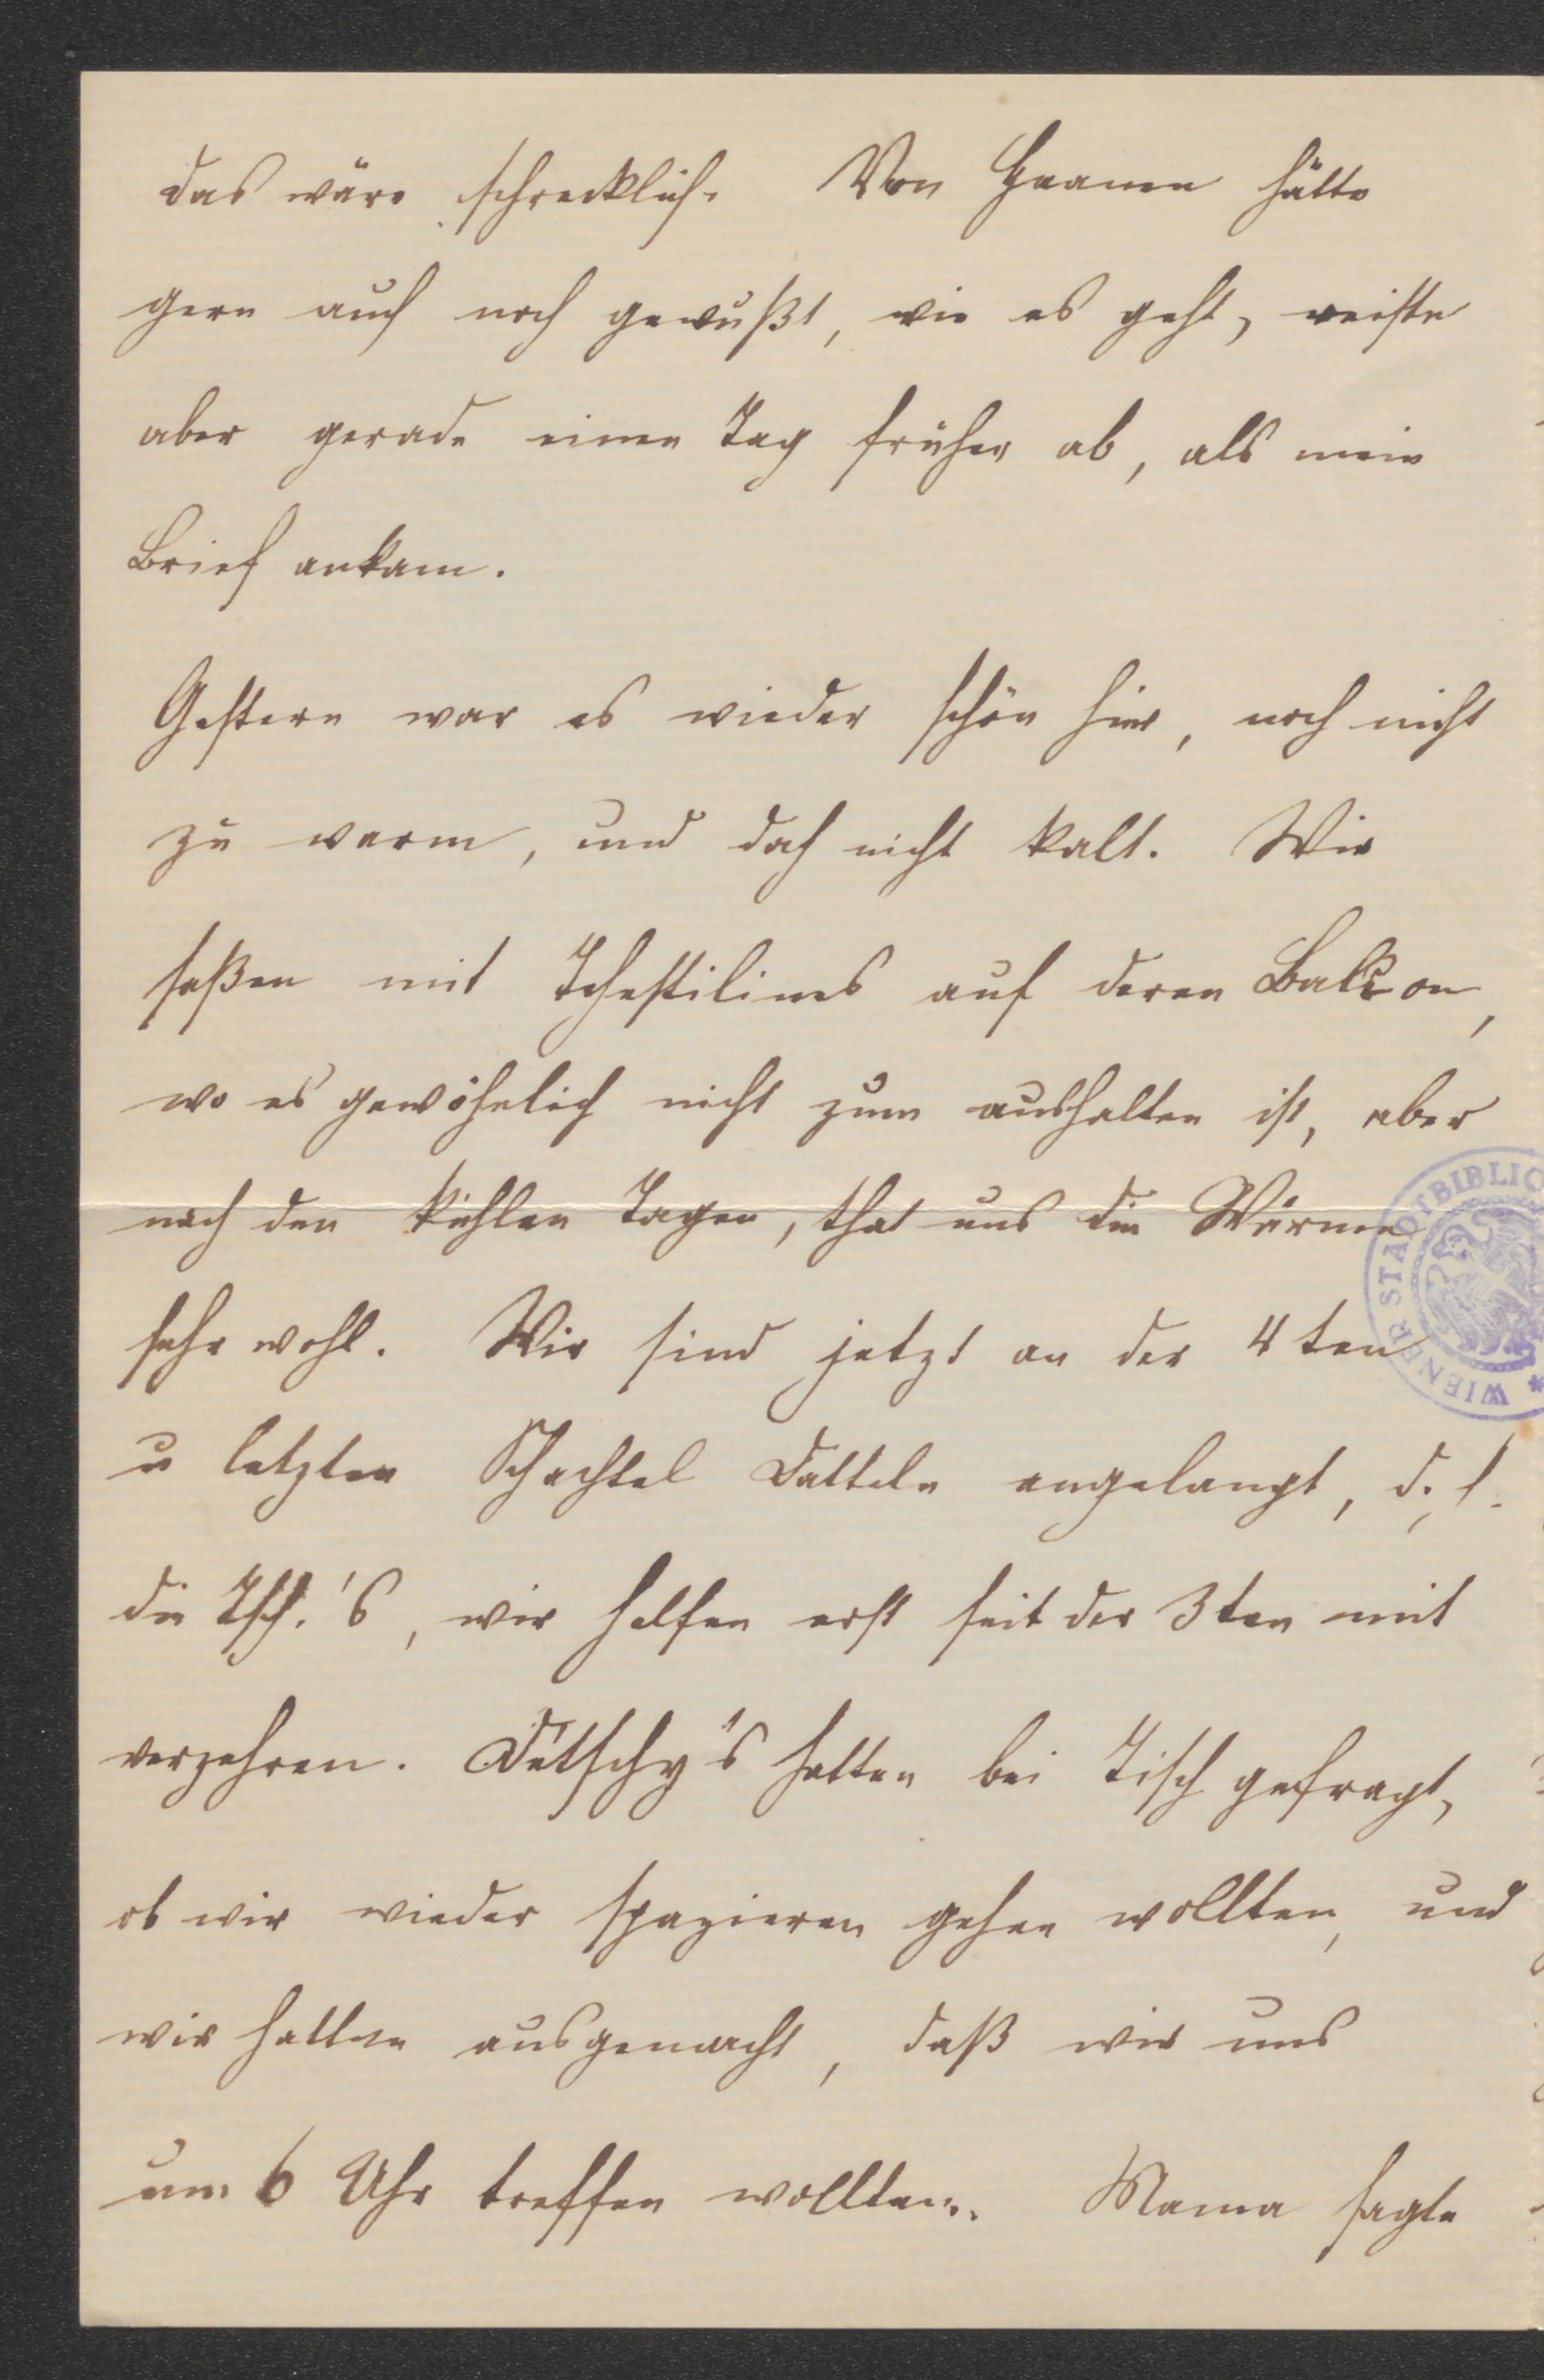 das wäre schrecklich. Von Haanen hätte
gern auch noch gewußt, wie es geht, reiste
aber gerade einen Tag früher ab, als mein
Brief ankam.
Gestern war es wieder schön hier, noch nicht
zu warm, und doch nicht kalt. Wir
saßen mit auf deren Balkon,
wo es gewöhnlich nicht zum aushalten ist, aber
nach den kühlen Tagen, that uns die Wärme
sehr wohl. Wir sind jetzt an der 4ten
u letzten Schachtel Datteln angelangt, d. h.
die Tsch.'s, wir helfen erst seit der 3ten mit
verzehren. Detschy's hatten bei Tisch gefragt,
ob wir wieder spazieren gehen wollten, und
wir hatten ausgemacht, daß wir uns
um 6 Uhr treffen wollten. Mama sagte
WIENER STADTBIBLIO